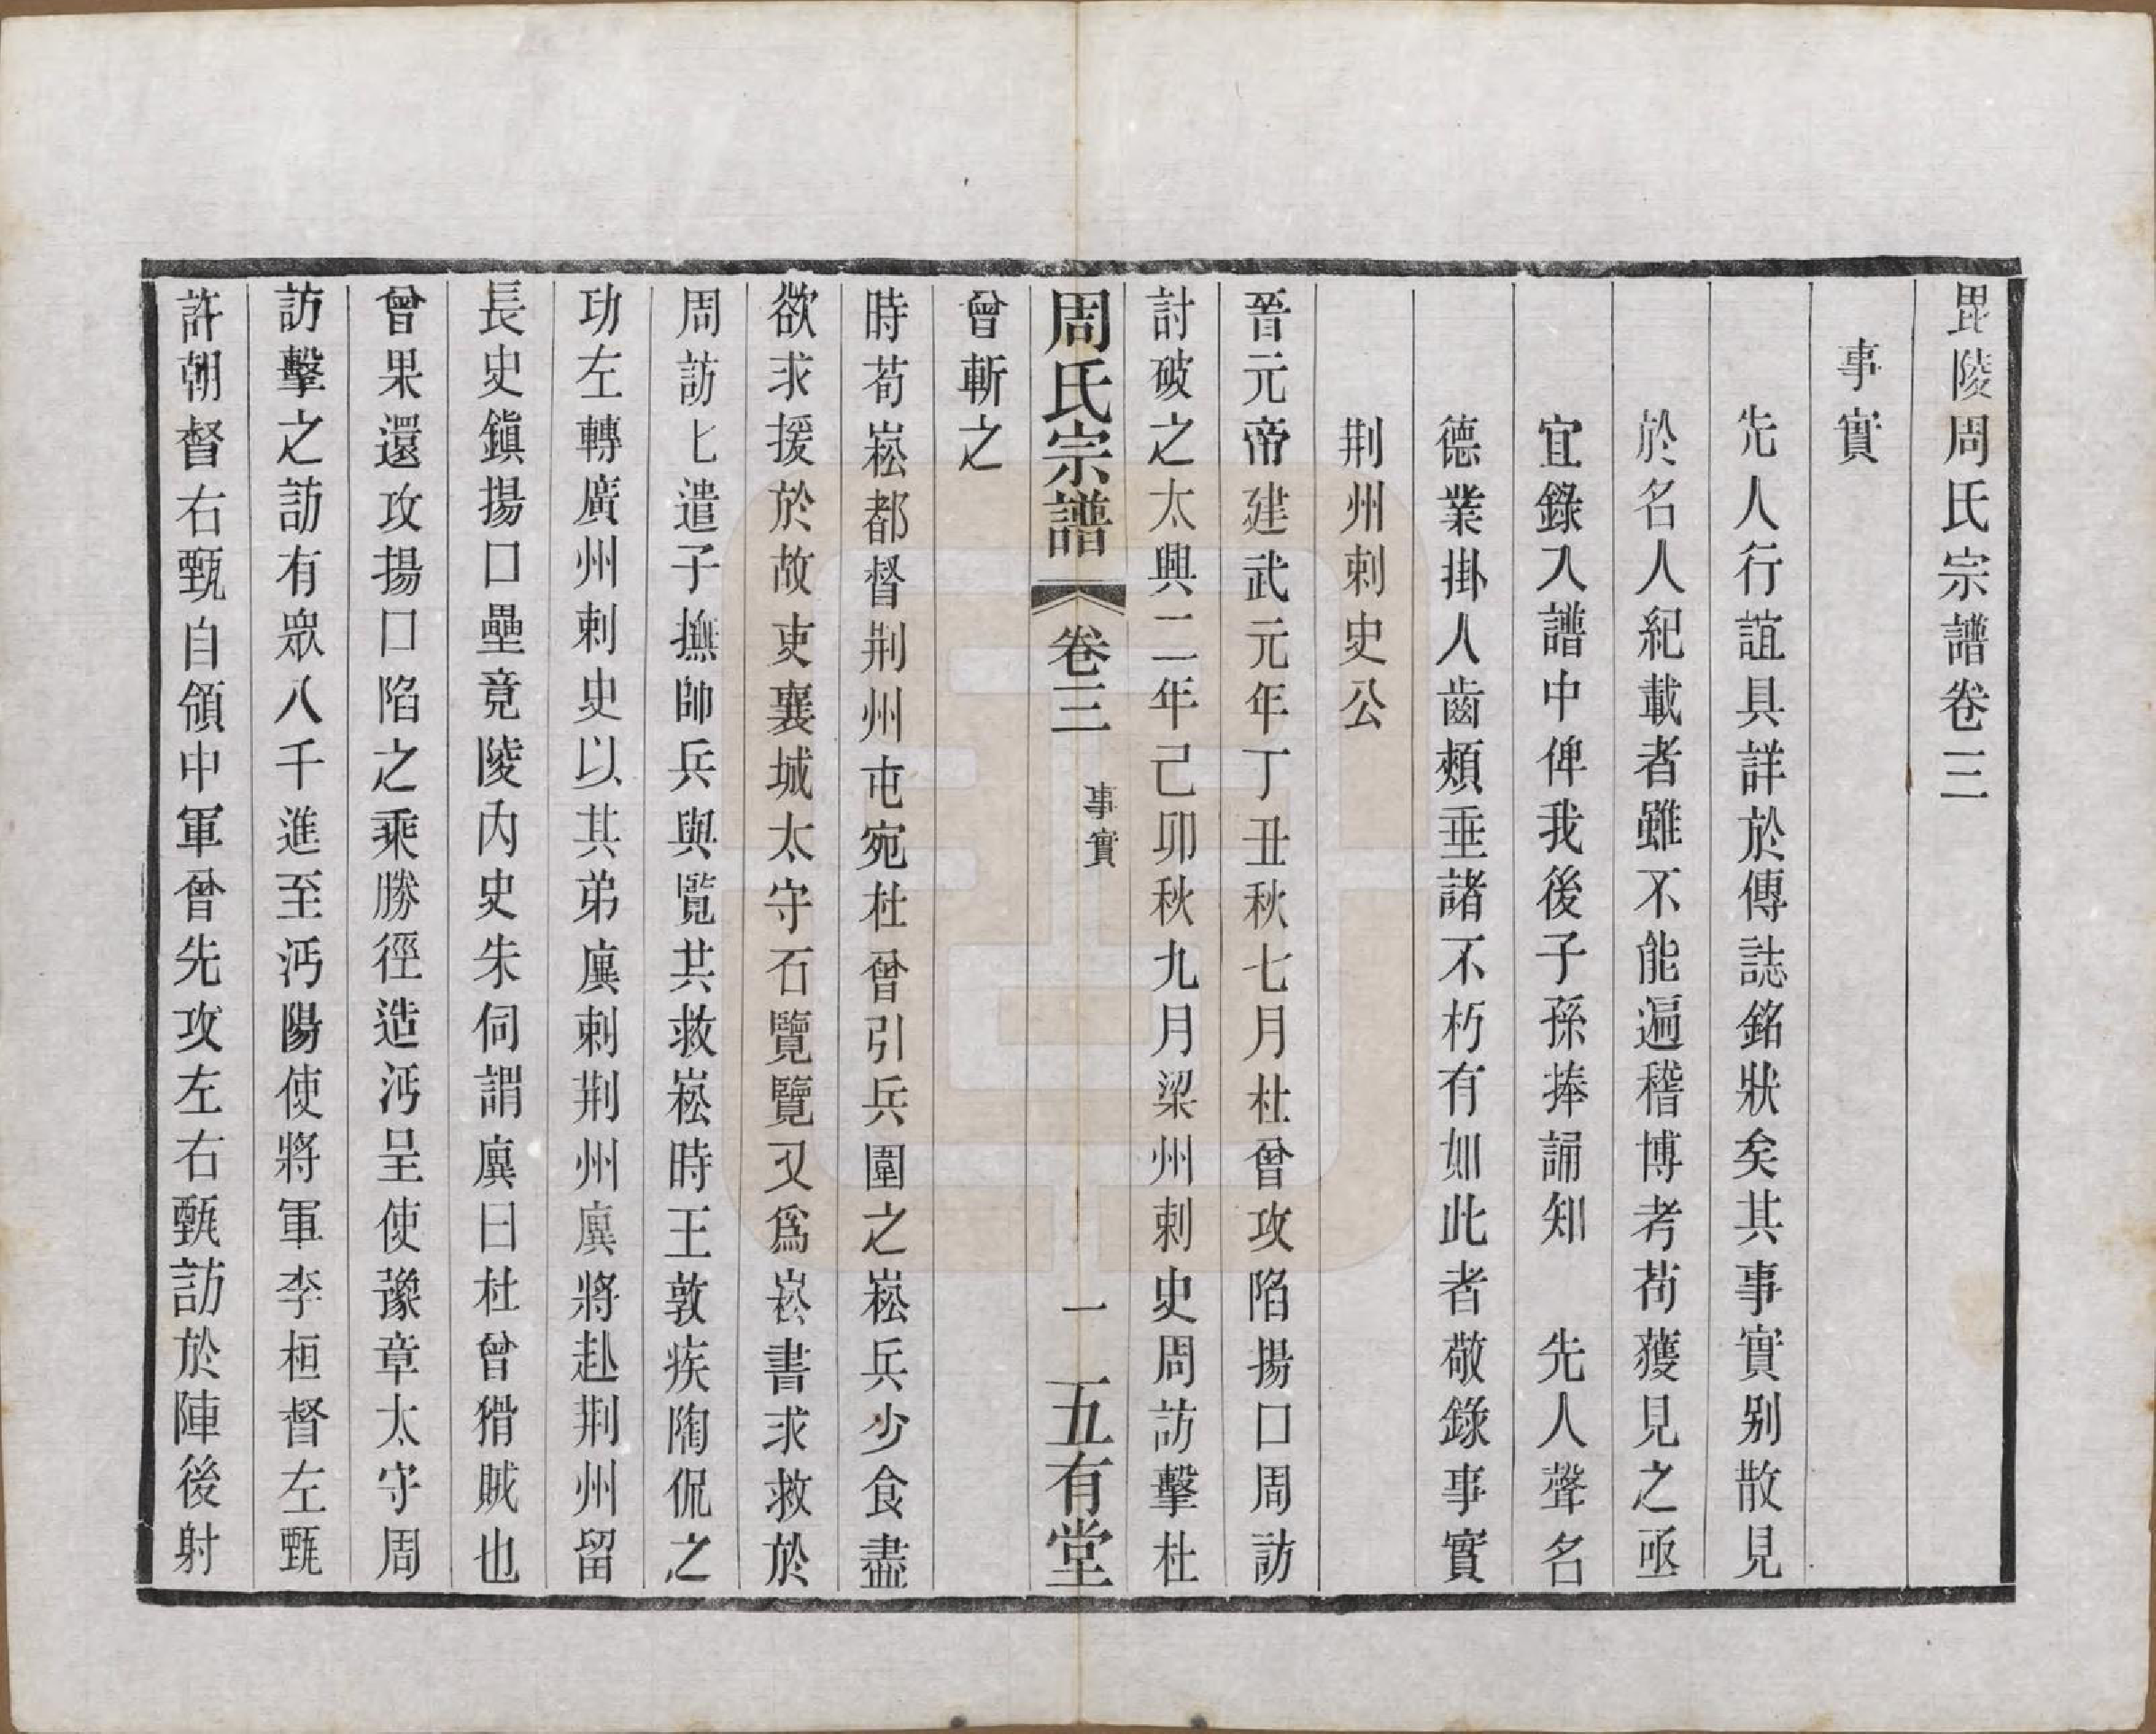 毘陵周氏宗譜卷三
事實
先人行誼具詳於傳誌銘狀矣其事實别散見
於名人紀載者雖不能遍稽博考苟獲見之亟
宜錄入譜中俾我後子孫捧誦知　先人聲名
德業掛人齒頰垂諸不朽有如此者敬錄事實
荆州刺史公
晉元帝建武元年丁丑秋七月杜曾攻陷揚口周訪
討破之太興二年己卯秋九月梁州刺史周訪擊杜
周氏宗譜
卷三
事實
一
五有堂
曾斬之
時荀崧都督荆州屯宛杜曾引兵圍之崧兵少食盡
欲求援於故吏襄城太守石覽覽又爲崧書求救於
周訪七遣子撫帥兵與覽共救崧時王敦疾陶侃之
功左轉廣州刺史以其弟廙刺荆州廙將赴荆州留
長史鎮揚口壘竟陵内史朱伺謂廙曰杜曾猾賊也
曾果還攻揚口陷之乘勝徑造沔呈使豫章太守周
訪擊之訪有眾八千進至沔陽使將軍李桓督左甄
許朝督右甄自領中軍曾先攻左右甄訪於陣後射